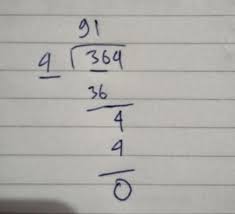 91
4 √364
36
4
4
0